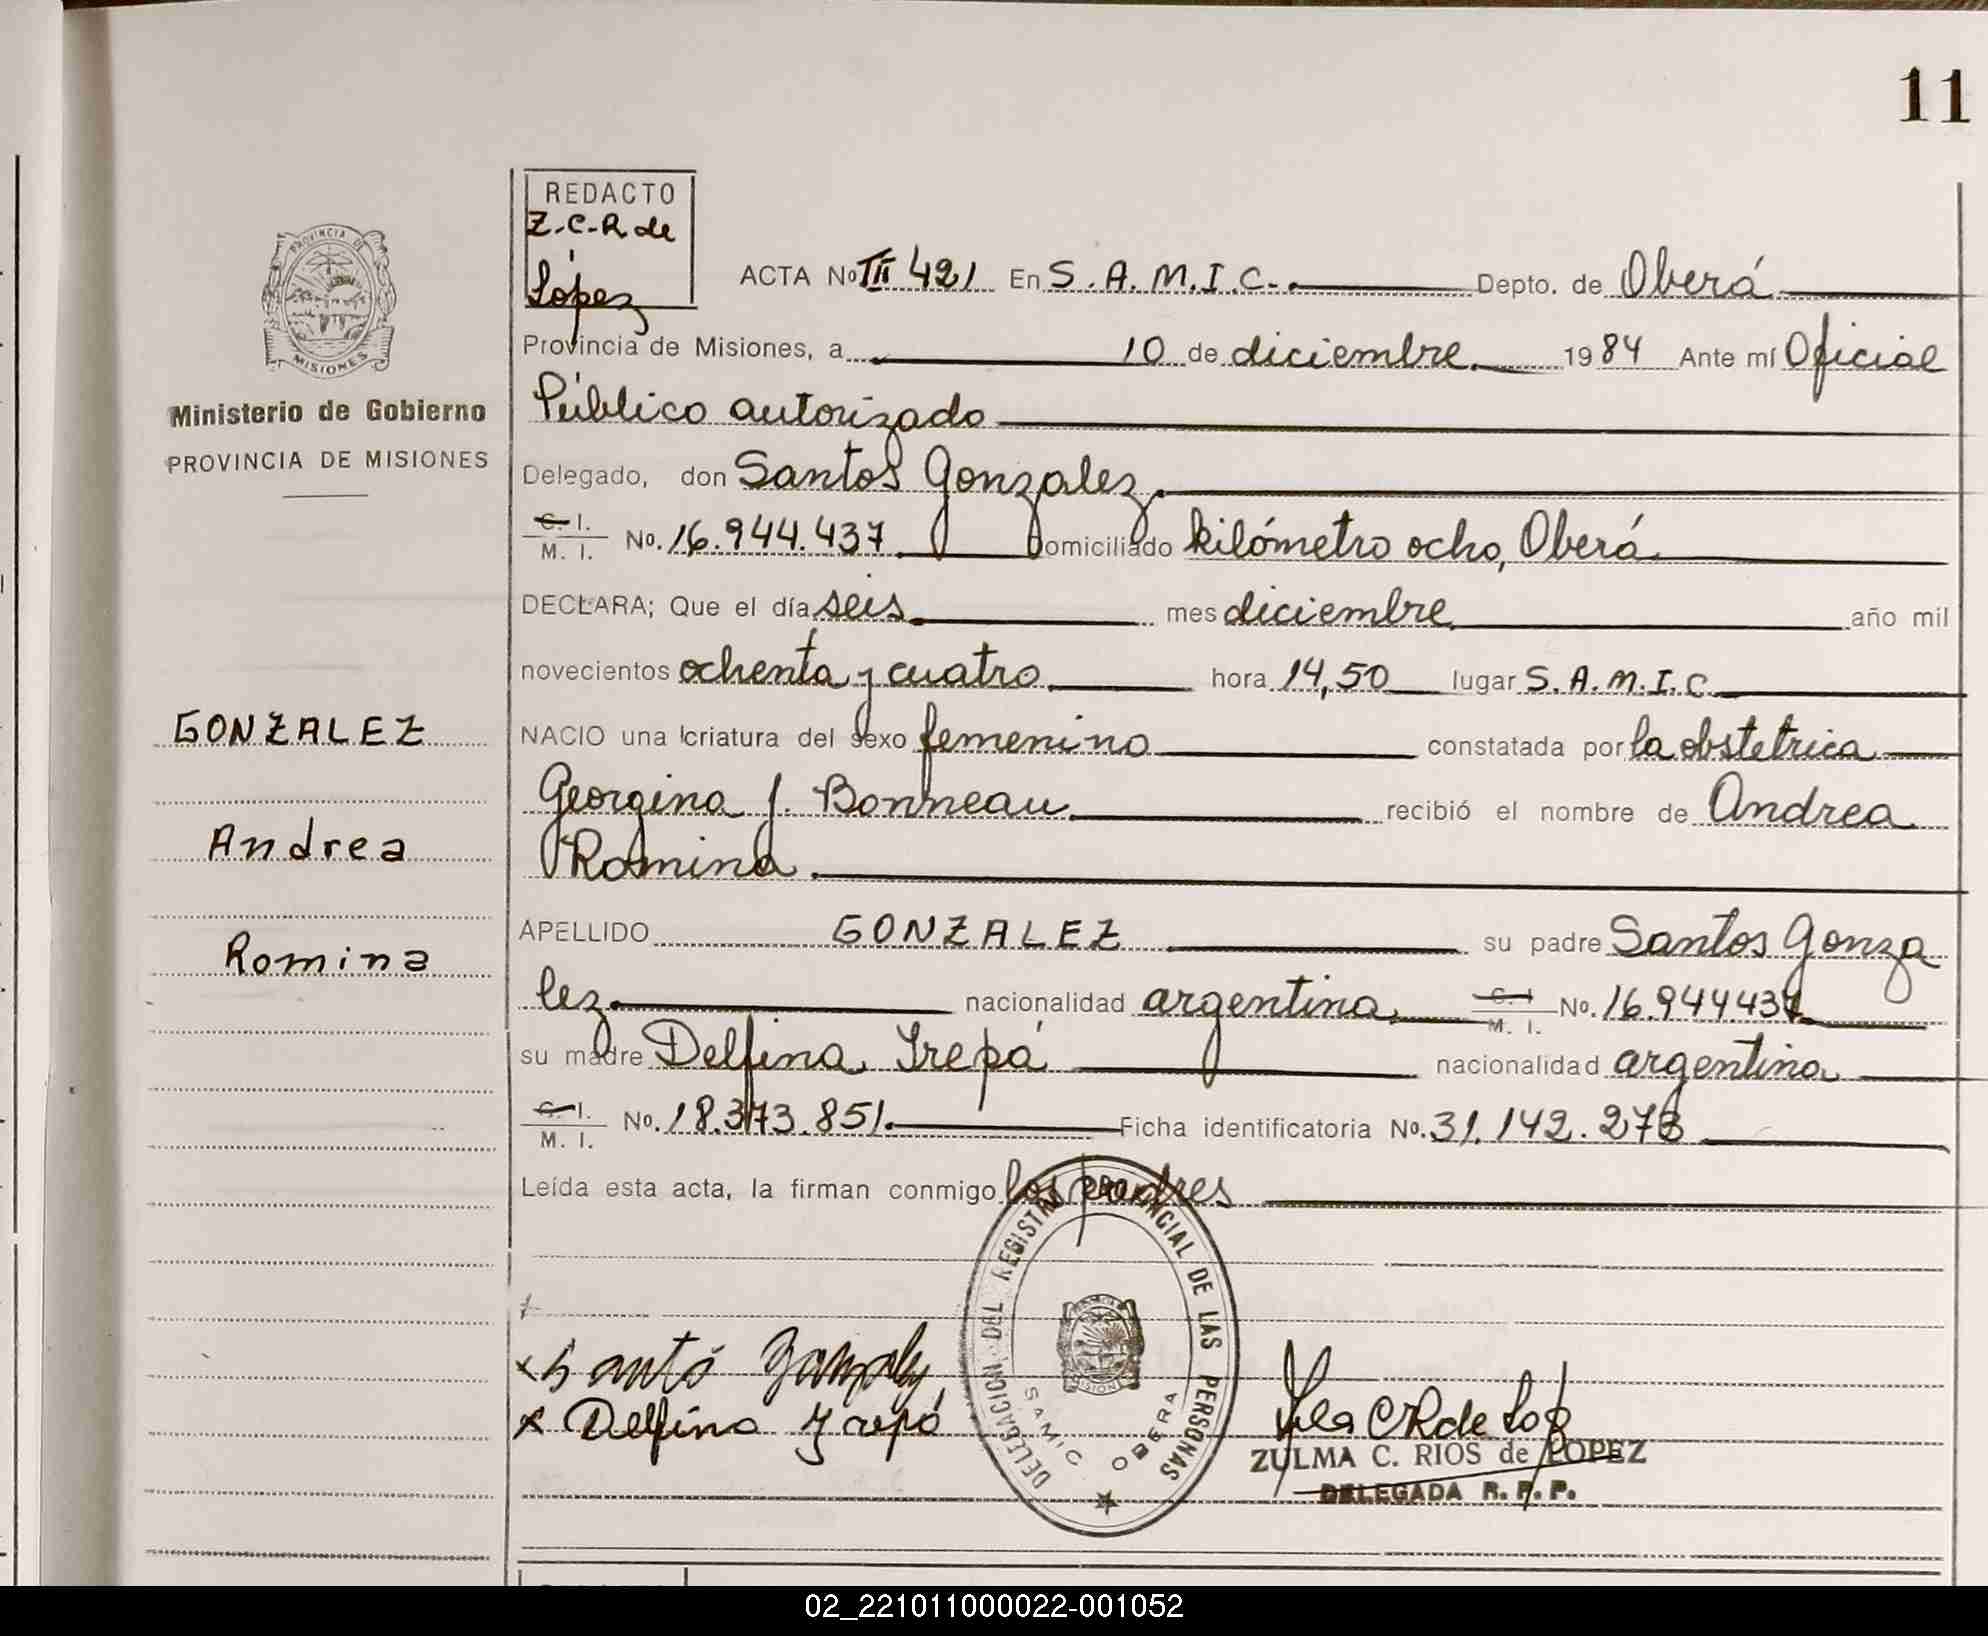 11
REDACTO
Z.C.R de
López
PROVINCIA DE
MISIONES
Ministerio de Gobierno
PROVINCIA DE MISIONES
GONZALEZ
Andrea
Romina
ACTA No III 421 En S.A.M.I.C. Depto. de Oberá
Provincia de Misiones, a 10 de diciembre 1984 Ante mí Oficial
Público autorizado
Delegado, don Santos Gonzalez
C. I. / M. I. No. 16.944.437 Domiciliado kilómetro ocho, Oberá
DECLARA; Que el día seis mes diciembre año mil
novecientos ochenta y cuatro hora 14,50 lugar S.A.M.I.C.
NACIO una criatura del sexo femenino constatada por la obstetrica
Georgina J. Bonneau recibió el nombre de Andrea
Romina
APELLIDO GONZALEZ su padre Santos Gonza
lez nacionalidad argentina C. I / M. I. No. 16.944437
su madre Delfina Irepá nacionalidad argentina
C. I. / M. I. No. 18.373.851. Ficha identificatoria No. 31.142.273
Leída esta acta, la firman conmigo los padres
DELEGACION DEL REGISTRO PROVINCIAL DE LAS PERSONAS
SAMIC OBERA
MISIONES
x Santo Gonzalez
x Delfina
ZULMA C. RIOS de LOPEZ
DELEGADA R. P. P.
02_221011000022-001052